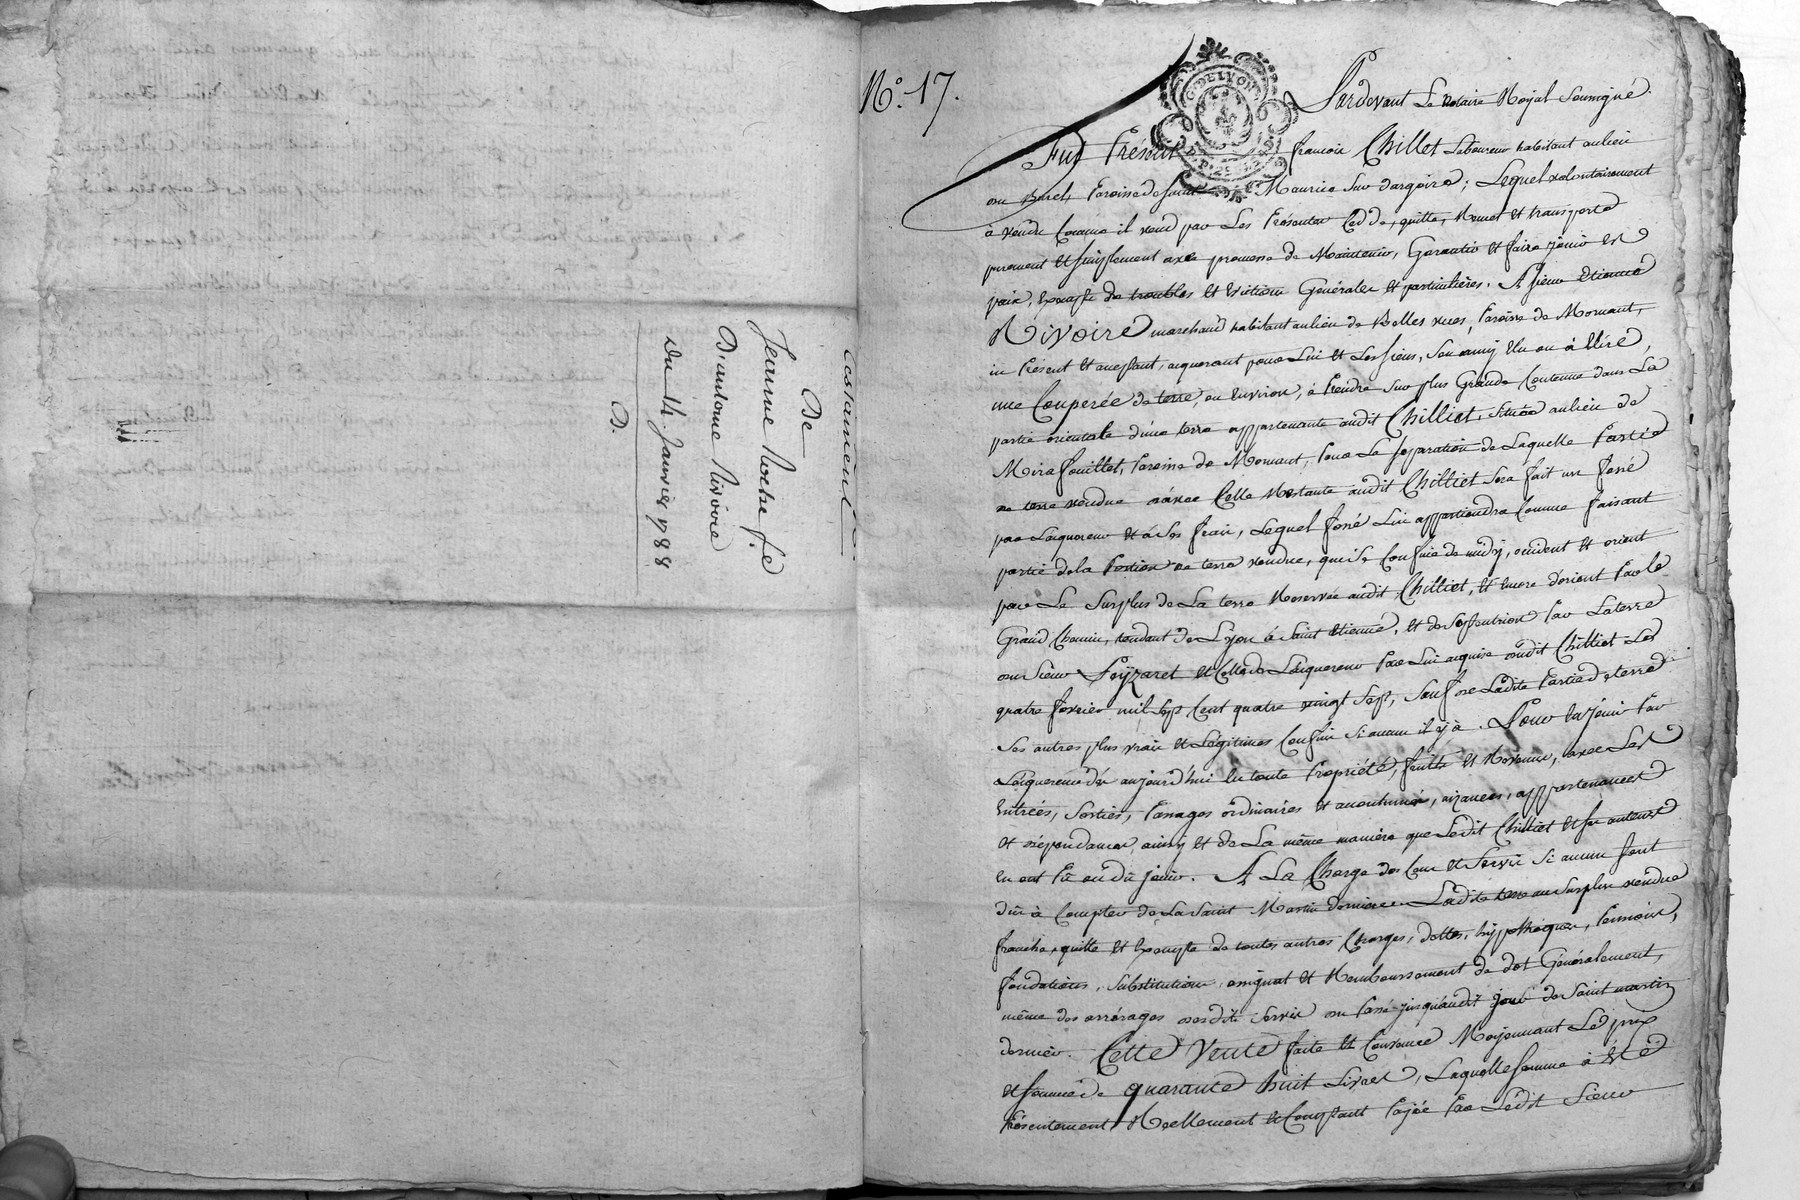 Testament
De
Jeanne Roche fe
D'antoine Rivoire
Du 14. Janvier 1788
D.
N.o 17.
G. DE LYON
Pardevant Le Notaire Royal soussigné.
Fut Présent françois Chillet Laboureur habitant au lieu
du Buret, Paroisse de saint Maurice sur dargoire; Lequel volontairement
à vendu Comme il vend par Les Présentes Cedde, quitte, Remet et transporte
purement et simplement avec promesse de Maintenir, Garantir et faire jouir en
paix, Exempt de troubles et Evictions Générales et particulières. A sieur Etienne
Rivoire marchand habitant au lieu de Belles vues, Paroisse de Mornant,
ici Présent et acceptant, acquereur pour Lui et Les siens, son amy Elu ou à Elire,
une Couperée de terre, ou Environ, à Prendre sur plus Grande Contenue dans La
partie orientale d'une terre appartenante audit Chilliet, située au lieu de
Mirafouillet, Paroisse de Mornant, Pour La separation de Laquelle Partie
de terre vendue d'avec Celle Restante audit Chilliet sera fait un fossé
par Lacquereur et à ses frais, Lequel fossé Lui appartiendra Comme faisant
partie de la Portion de terre vendue, qui se Confine de midy, occident et orient
par Le Surplus de La terre Reservée audit Chilliet, et Encore d'orient Par le
Grand Chemin, tendant de Lyon à Saint Etienne, et de Septentrion Par La terre
du Sieur Peyzaret et Celle de Lacquereur Par Lui acquise dudit Chilliet Le
quatre fevrier mil sept Cent quatre vingt sept, sauf de Ladite Partie de terre
Ses autres plus vrais et Légitimes Confins si aucun il y à. Pour En jouir Par
Lacquereur dès aujourd'hui En toute Propriété, fruits et Revenus, avec Les
Entrées, Sorties, Passages ordinaires et accoutumés, aizances, appartenances
et dépendances, ainsy et de La même manière que Ledit Chilliet et ses auteurs
En ont Pû ou dû jouir. A La Charge des Cens et Servis si aucun sont
dûs à Compter de La Saint Martin dernière. Ladite terre au Surplus vendue
franche, quitte et Exempte de toutes autres Charges, dettes, hypothèques, Pensions,
fondations, Substitutions, assignat et Remboursement de dot Généralement,
même des arrérages desdits Servis du Passé jusqu'audit jour de Saint martin
dernier. Cette Vente faite et Convenue Moyennant Le prix
et somme de quarante huit Livres, Laquelle somme à Eté
Présentement Réellement et Comptant Payée Par Ledit Sieur